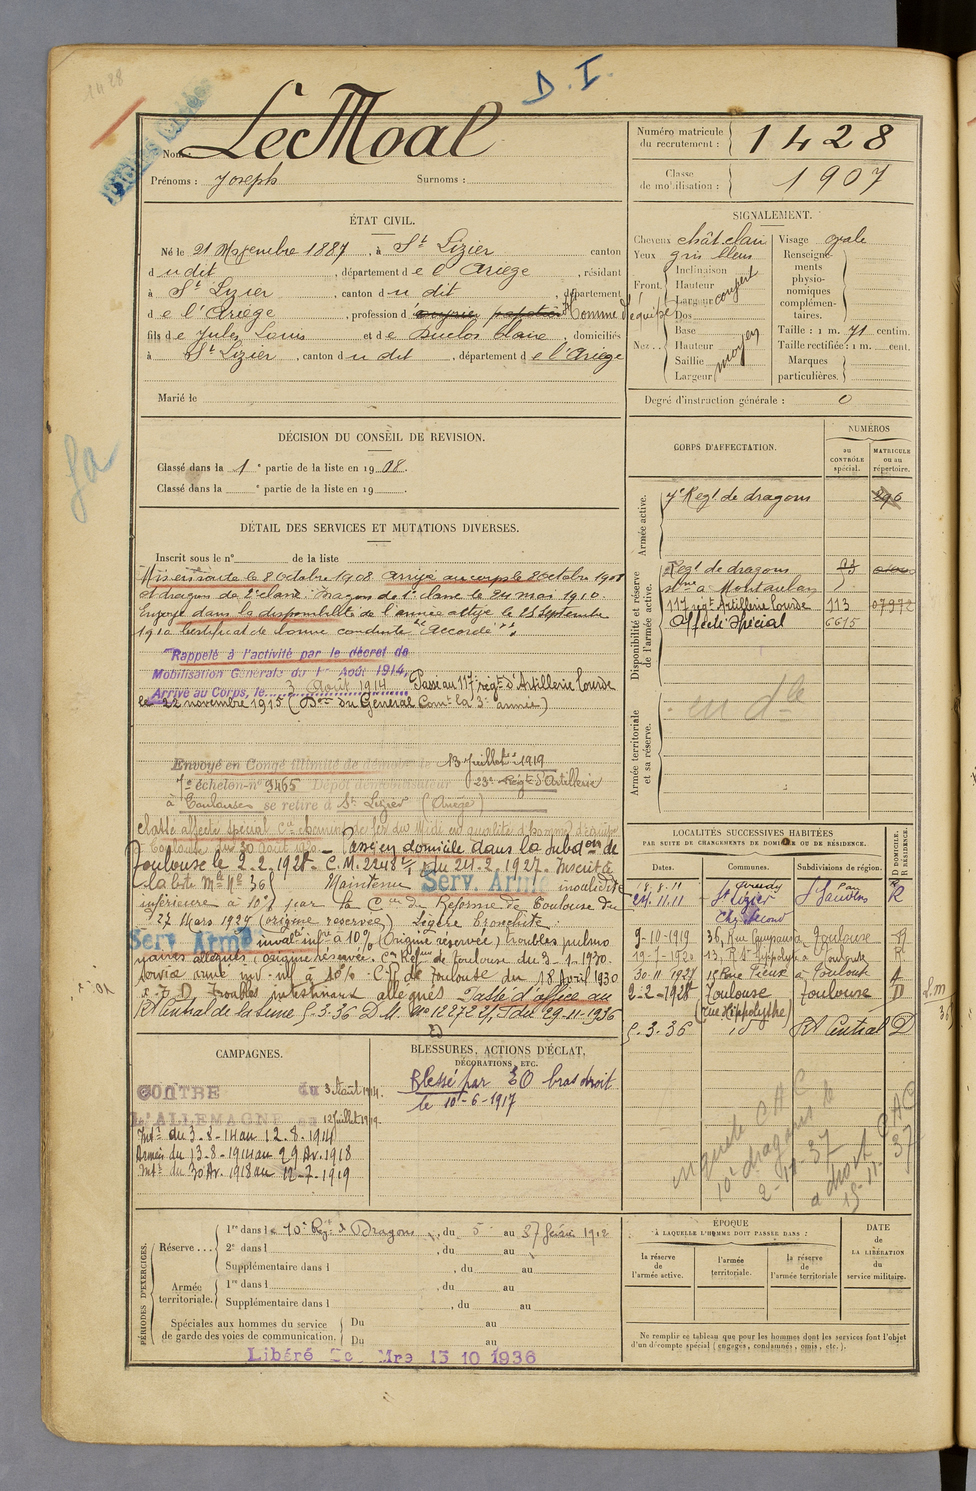 1428
D. I.
Fiches Créées
Nom : Le Moal
Prénoms : Joseph Surnoms :
Numéro matricule du recrutement : 1428
Classe de mobilisation : 1907
ÉTAT CIVIL.
Né le 21 1887, à St Lizier canton
d u dit, département d e l'Ariège, résidant
à St Lizier, canton d u dit, département
d e l'Ariège, profession d' Homme d'équipe
fils d e Jules Louis et d e Duclos Claire, domiciliés
à St Lizier, canton d u dit, département d e l'Ariège
Marié le
SIGNALEMENT.
Cheveux chât. clair Visage ovale
Yeux gris bleu
Front. Inclinaison
Hauteur
Largeur
Nez.. Dos
Base
Hauteur
Saillie
Largeur
moyen
Renseignements physionomiques complémentaires.
Taille : 1 m. 71 centim.
Taille rectifiée : 1 m. cent.
Marques particulières.
Degré d'instruction générale : 0
DÉCISION DU CONSEIL DE REVISION.
Classé dans la 1e partie de la liste en 1908.
Classé dans la e partie de la liste en 19 .
DÉTAIL DES SERVICES ET MUTATIONS DIVERSES.
Inscrit sous le n° de la liste
Mis en route le 8 Octobre 1908 arrivé au corps le 8 Octobre 1908
et dragon de 2e classe. Dragon de 1e classe le 24 mai 1910.
Envoyé dans la disponibilité de l'armée active le 25 Septembre
1910 Certificat de bonne conduite "Accordé".
Rappelé à l'activité par le décret de
Mobilisation Générale du 1er Août 1914,
Arrivé au Corps, le 3 Août 1914. Passé au 117e régt d'Artillerie lourde
le 22 novembre 1915 (Don du Général Comt la 3e armée)
Envoyé en Congé illimité de 13 Juillet 1919
7e échelon n° 9465 Dépot démobilisateur 23e Régt d'Artillerie
à Toulouse se retire à St Lizier (Ariège)
Classé affecté spécial Cie chemins de fer du Midi en qualité d'homme d'équipe
Toulouse du 30 Août 1920 – Passé en domicile dans la Subdon de
Toulouse le 2-2-1928 – C.M. 2248 du 24-2-1927. Inscrit à
la liste Mle N° 365 Maintenu Serv. Armé invalidité
inférieure à 10% par la Con de Réforme de Toulouse du
27 Mars 1929 (origine réservée) Légère bronchite.
Serv. Armé invalté infre à 10% (Origine réservée) troubles pulmo
naires allégués, origine réservée. Con Réfme de Toulouse du 3-1-1930.
Service armé inv. inf à 10% C.R. de Toulouse du 18 Avril 1930
troubles intestinaux allégués Passé d'office au
Rt Central de la Seine 5-3-36 D.M. No 12272 du 29-11-1935
CORPS D'AFFECTATION.
NUMÉROS
au CONTRÔLE spécial.
MATRICULE ou au répertoire.
Armée active.
7e Régt de dragons 296
Disponibilité et réserve de l'armée active.
Régt de dragons
à Montauban
117 régt Artillerie lourde 113 07972
Affecté Spécial 6615
Armée territoriale et sa réserve.
LOCALITÉS SUCCESSIVES HABITÉES
PAR SUITE DE CHANGEMENTS DE DOMICILE OU DE RÉSIDENCE.
Dates. Communes. Subdivisions de région. D DOMICILE. R RÉSIDENCE.
18.8.11 Arudy Pau R
24.11.11 St Lizier St Gaudens
9-10-1919 36, Rue Toulouse R
19-7-1920 13, R St Hippolyte à Toulouse R
30-11-1927 Toulouse
2-2-1928 Toulouse Toulouse D
(rue Hippolythe)
5-3-36 id Rt Central D
CAMPAGNES.
CONTRE du 3 Août 1914.
L'ALLEMAGNE au 12 Juillet 1919.
Intr du 3-8-14 au 12-8-1914
Armées du 13-8-1914 au 29 Av. 1918
Intr du 30 Av. 1918 au 12-7-1919
BLESSURES, ACTIONS D'ÉCLAT,
DÉCORATIONS, ETC.
Blessé par EO bras droit
le 10-6-1917
CAC
10e dragons
2-11-37
PÉRIODES D'EXERCICES.
Réserve... 1re dans le 10e Régt de Dragons, du 5 au 27 février 1912
2e dans l , du au
Supplémentaire dans l , du au
Armée territoriale. 1re dans l , du au
Supplémentaire dans l , du au
Spéciales aux hommes du service de garde des voies de communication. Du au
Du au
Libéré Sce Mre 15 10 1936
ÉPOQUE
À LAQUELLE L'HOMME DOIT PASSER DANS :
la réserve de l'armée active.
l'armée territoriale.
la réserve de l'armée territoriale
DATE de LA LIBÉRATION du service militaire.
Ne remplir ce tableau que pour les hommes dont les services font l'objet
d'un décompte spécial (engagés, condamnés, omis, etc.).